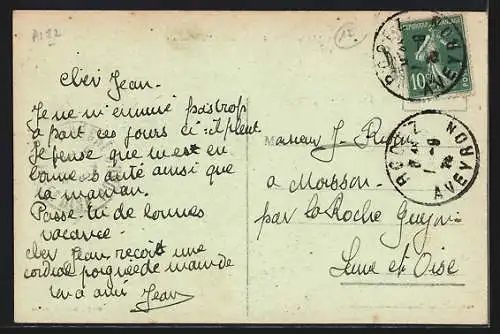 A182
12
RODEZ
AVEYRON
10c
Cher Jean.
Je ne m'ennuie pas trop
à part ces jours ci : il pleut.
Je pense que tu est en
bonne santé ainsi que
ta maman.
Passe-tu de bonnes
vacance.
Cher Jean reçoit une
cordial poignée de main de
ton ami Jean
RODEZ
AVEYRON
Monsieur J.
à Moisson.
par La Roche Guyon
Seine et Oise